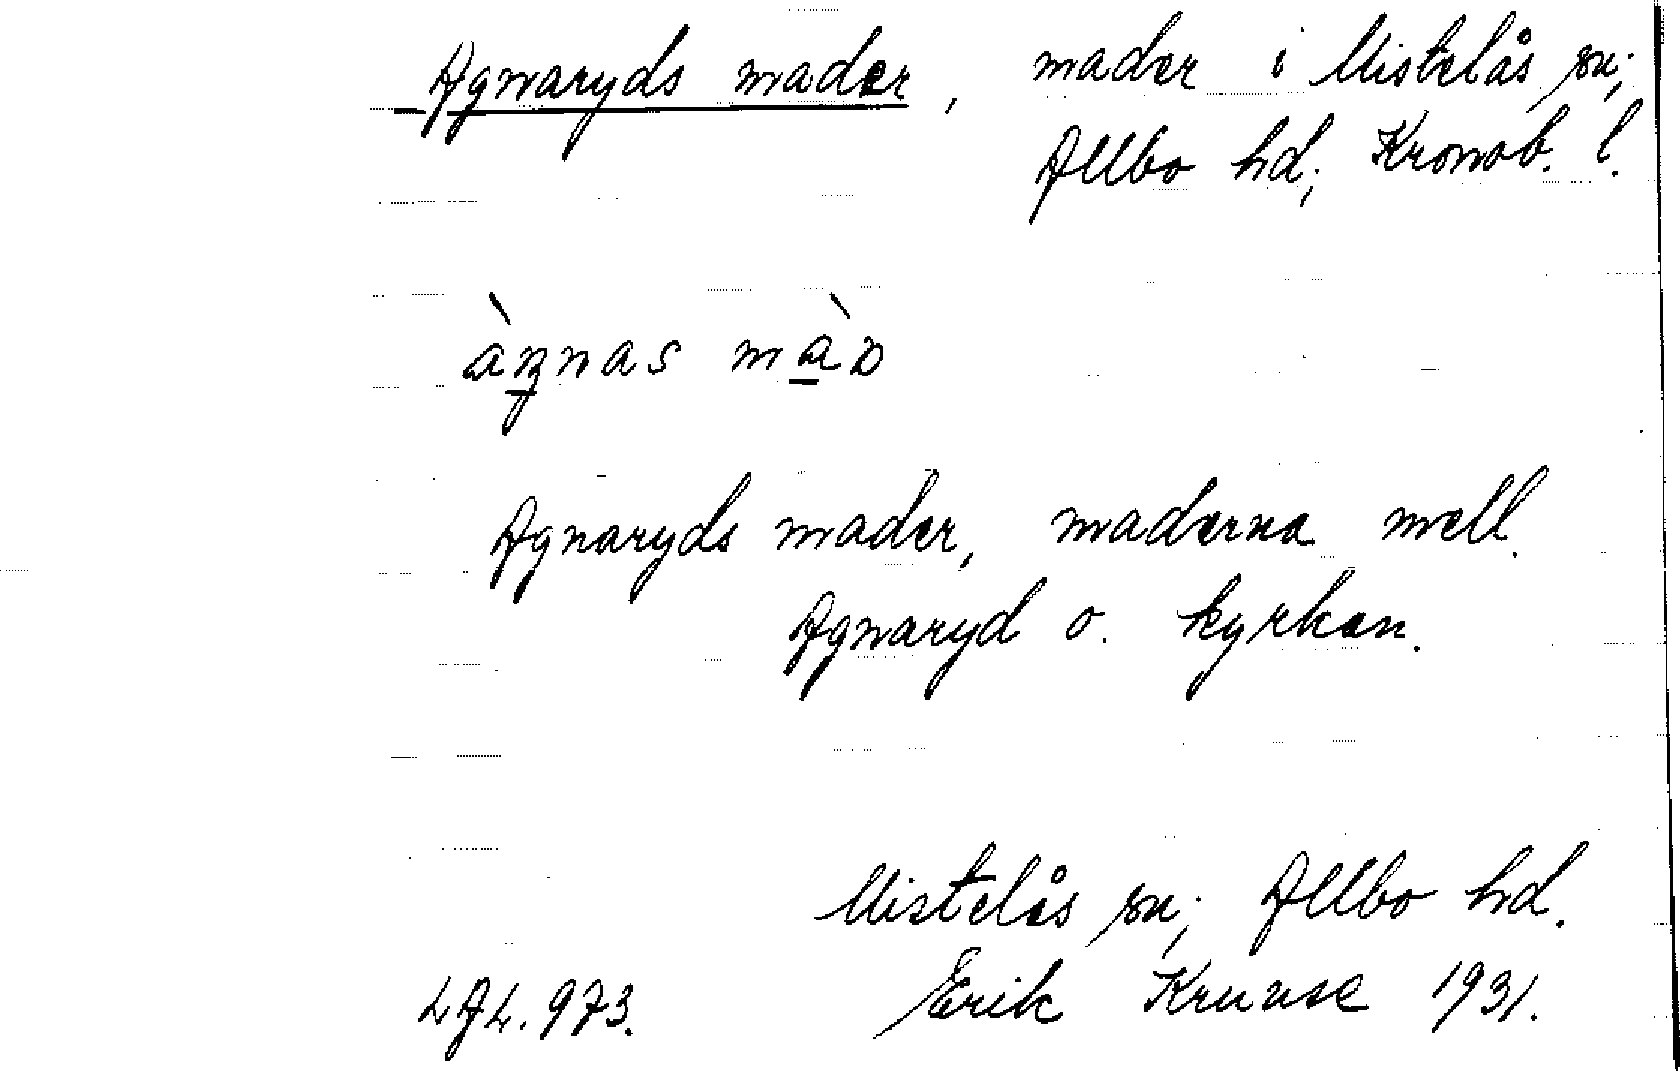 Agnaryds mader, mader i Mistelås sn;
Allbo hd; Kronob. l.
àŋnas màn
Agnaryds mader, maderna mell.
Agnaryd o. kyrkan.
Mistelås sn; Allbo hd.
LAL. 973. Erik Kruuse 1931.